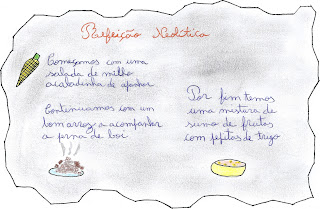 Refeição Neolítica
Começamos com uma
salada de milho
acabadinha de apanhar
Continuamos com um
bom arroz a acompanhar
a perna de boi
Por fim temos
uma mistura de
sumo de frutas
com pepitas de trigo